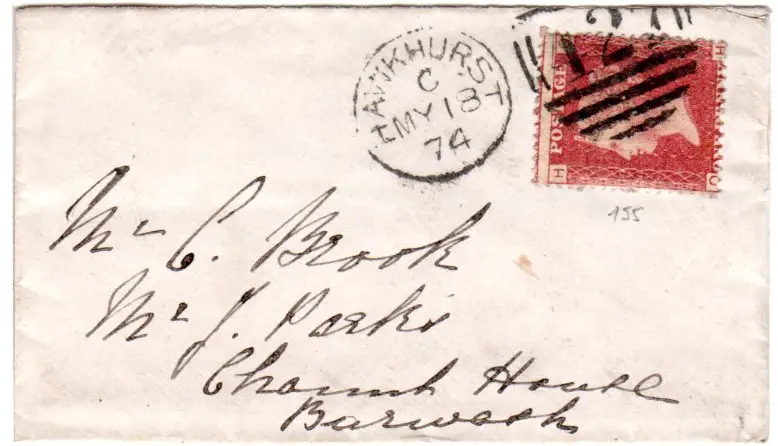 HAWKHURST
C
MY 18
74
POSTAGE
H
H
155
Mr C. Brook
Mr J. Parks
House
Barwash